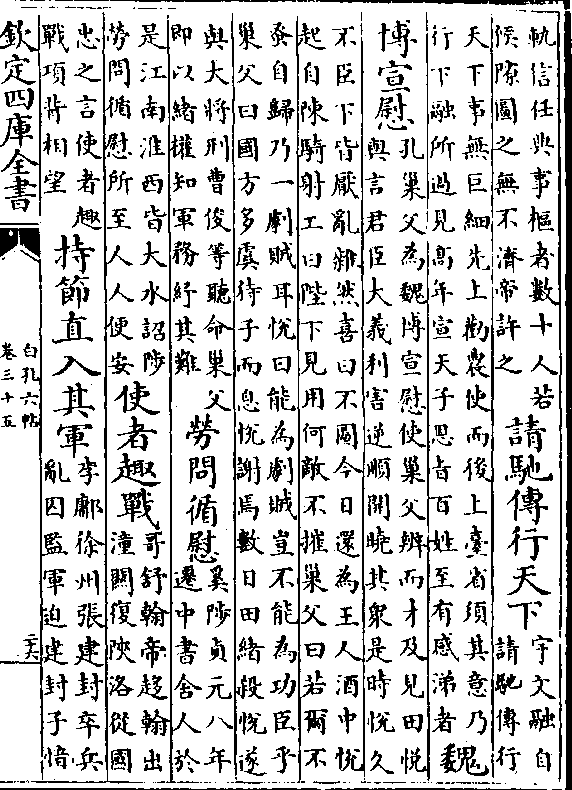 軌信任典事樞者數十人若
侯隙圖之無不濟帝許之
請馳傳行天下
宇文融自
請馳傳行
天下事無巨細先上勸農使而後上臺省須其意乃
行下融所過見高年宣天子恩旨百姓至有感涕者
魏
博宣慰
孔巢父為魏博宣慰使巢父辨而才及見田悅
與言君臣大義利害逆順開曉其衆是時悅久
不臣下皆厭亂雜然喜曰不圖今日還為王人酒中悅
起自陳騎射工曰陛下見用何敵不摧巢父曰若爾不
蚤自歸乃一劇賊耳悅曰能為劇賊豈不能為功臣乎
巢父曰國方多虞待子而息悅謝焉數日田緒殺悅遂
與大將刑曹俊等聽命巢父
即以緒權知軍務紓其難
勞問循慰
奚陟貞元八年
遷中書舍人於
是江南淮西皆大水詔陟
勞問循慰所至人人便安
使者趣戰
哥舒翰帝趍翰出
潼關復陝洛從國
忠之言使者趣
戰項背相望
持節直入其軍
李鄘徐州張建封卒兵
亂囚監軍迫建封子愔
欽定四庫全書
白孔六帖
卷三十五
二六